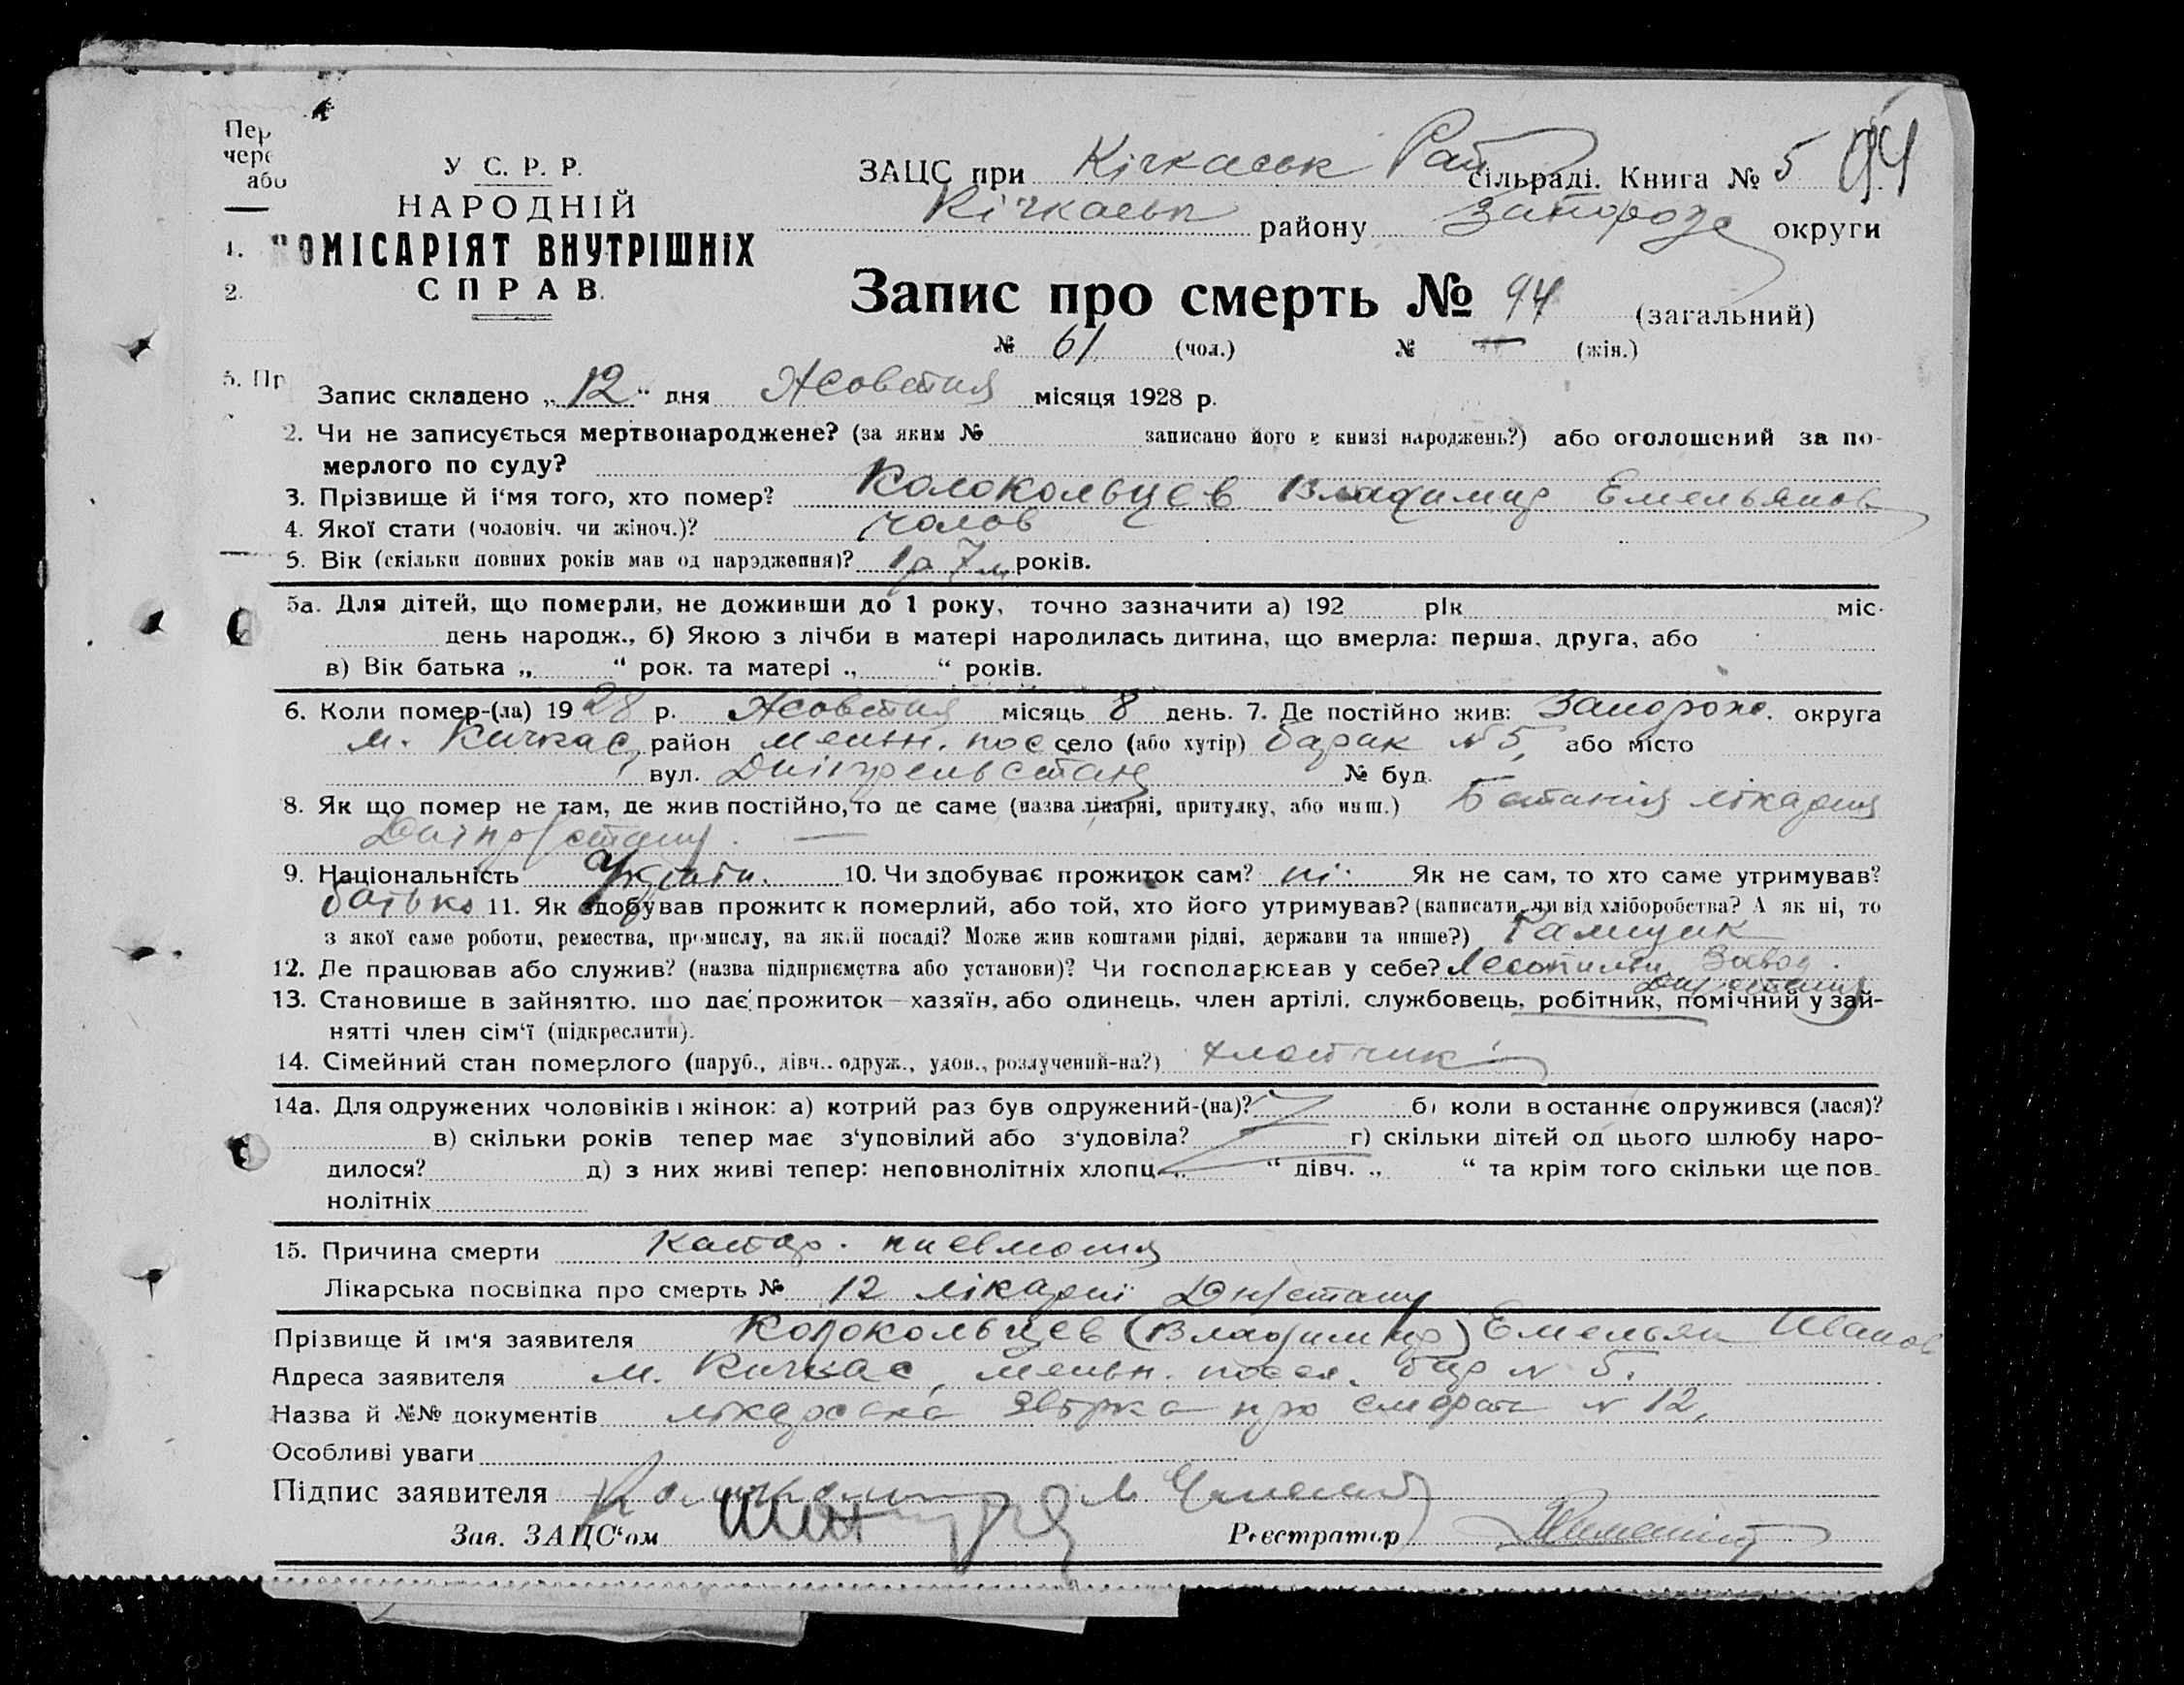 Пер
чере
або
1.
2.
5. Пр
У С. Р. Р.
НАРОДНІЙ
КОМІСАРІЯТ ВНУТРІШНІХ
СПРАВ.
ЗАЦС при Кічкаськ Рай сільраді. Книга № 5 94
Кічкаськ району Запорозс округи
Запис про смерть № 94 (загальний)
№ 61 (чол.) № — (жін.)
Запис складено „12“ дня Жовтня місяця 1928 р.
2. Чи не записується мертвонароджене? (за яким № записано його в книзі народжень?) або оголошений за по-
мерлого по суду?
3. Прізвище й і'мя того, хто помер? Колокольцев Владимир Емельянов
4. Якої стати (чоловіч. чи жіноч.)? чолов
5. Вік (скільки повних років мав од народження)? 1р 7м років.
5а. Для дітей, що померли, не доживши до 1 року, точно зазначити а) 192 рік міс.
день народж., б) Якою з лічби в матері народилась дитина, що вмерла: перша, друга, або
в) Вік батька „ “ рок. та матері „ “ років.
6. Коли помер-(ла) 1928 р. Жовтня місяць 8 день. 7. Де постійно жив: Запорож. округа
м. Кичкас, район Меннн. пос село (або хутір) барак №5, або місто
вул. Дніпрельстан № буд.
8. Як що помер не там, де жив постійно, то де саме (назва лікарні, притулку, або инш.) лікарня
9. Національність Україн. 10. Чи здобуває прожиток сам? ні. Як не сам, то хто саме утримував?
батько 11. Як здобував прожиток померлий, або той, хто його утримував? (написати, чи від хліборобства? А як ні, то
з якої саме роботи, ремества, промислу, на якій посаді? Може жив коштами рідні, держави та инше?)
12. Де працював або служив? (назва підприємства або установи)? Чи господарював у себе? Лесопильн. Завод.
13. Становише в зайняттю, що дає прожиток—хазяїн, або одинець, член артілі, службовець, робітник, помічний у зай-
нятті член сім'ї (підкреслити).
14. Сімейний стан померлого (паруб., дівч., одруж., удов., розлучений-на?) хлопчик
14а. Для одружених чоловіків і жінок: а) котрий раз був одружений-(на)? б) коли в останнє одружився (лася)?
в) скільки років тепер має з'удовілий або з'удовіла? г) скільки дітей од цього шлюбу наро-
дилося? д) з них живі тепер: неповнолітніх хлопц. „ “ дівч. „ “ та крім того скільки ще пов-
нолітніх
15. Причина смерти Катар. пневмонія
Лікарська посвідка про смерть № 12 лікарні
Прізвище й ім'я заявителя Колокольцев (Владимир) Емельян Иванов
Адреса заявителя м. Кичкас, Меннн. посел. бар № 5.
Назва й №№ документів лікарська про смерть № 12,
Особливі уваги
Підпис заявителя
Зав. ЗАЦС'ом Реєстратор